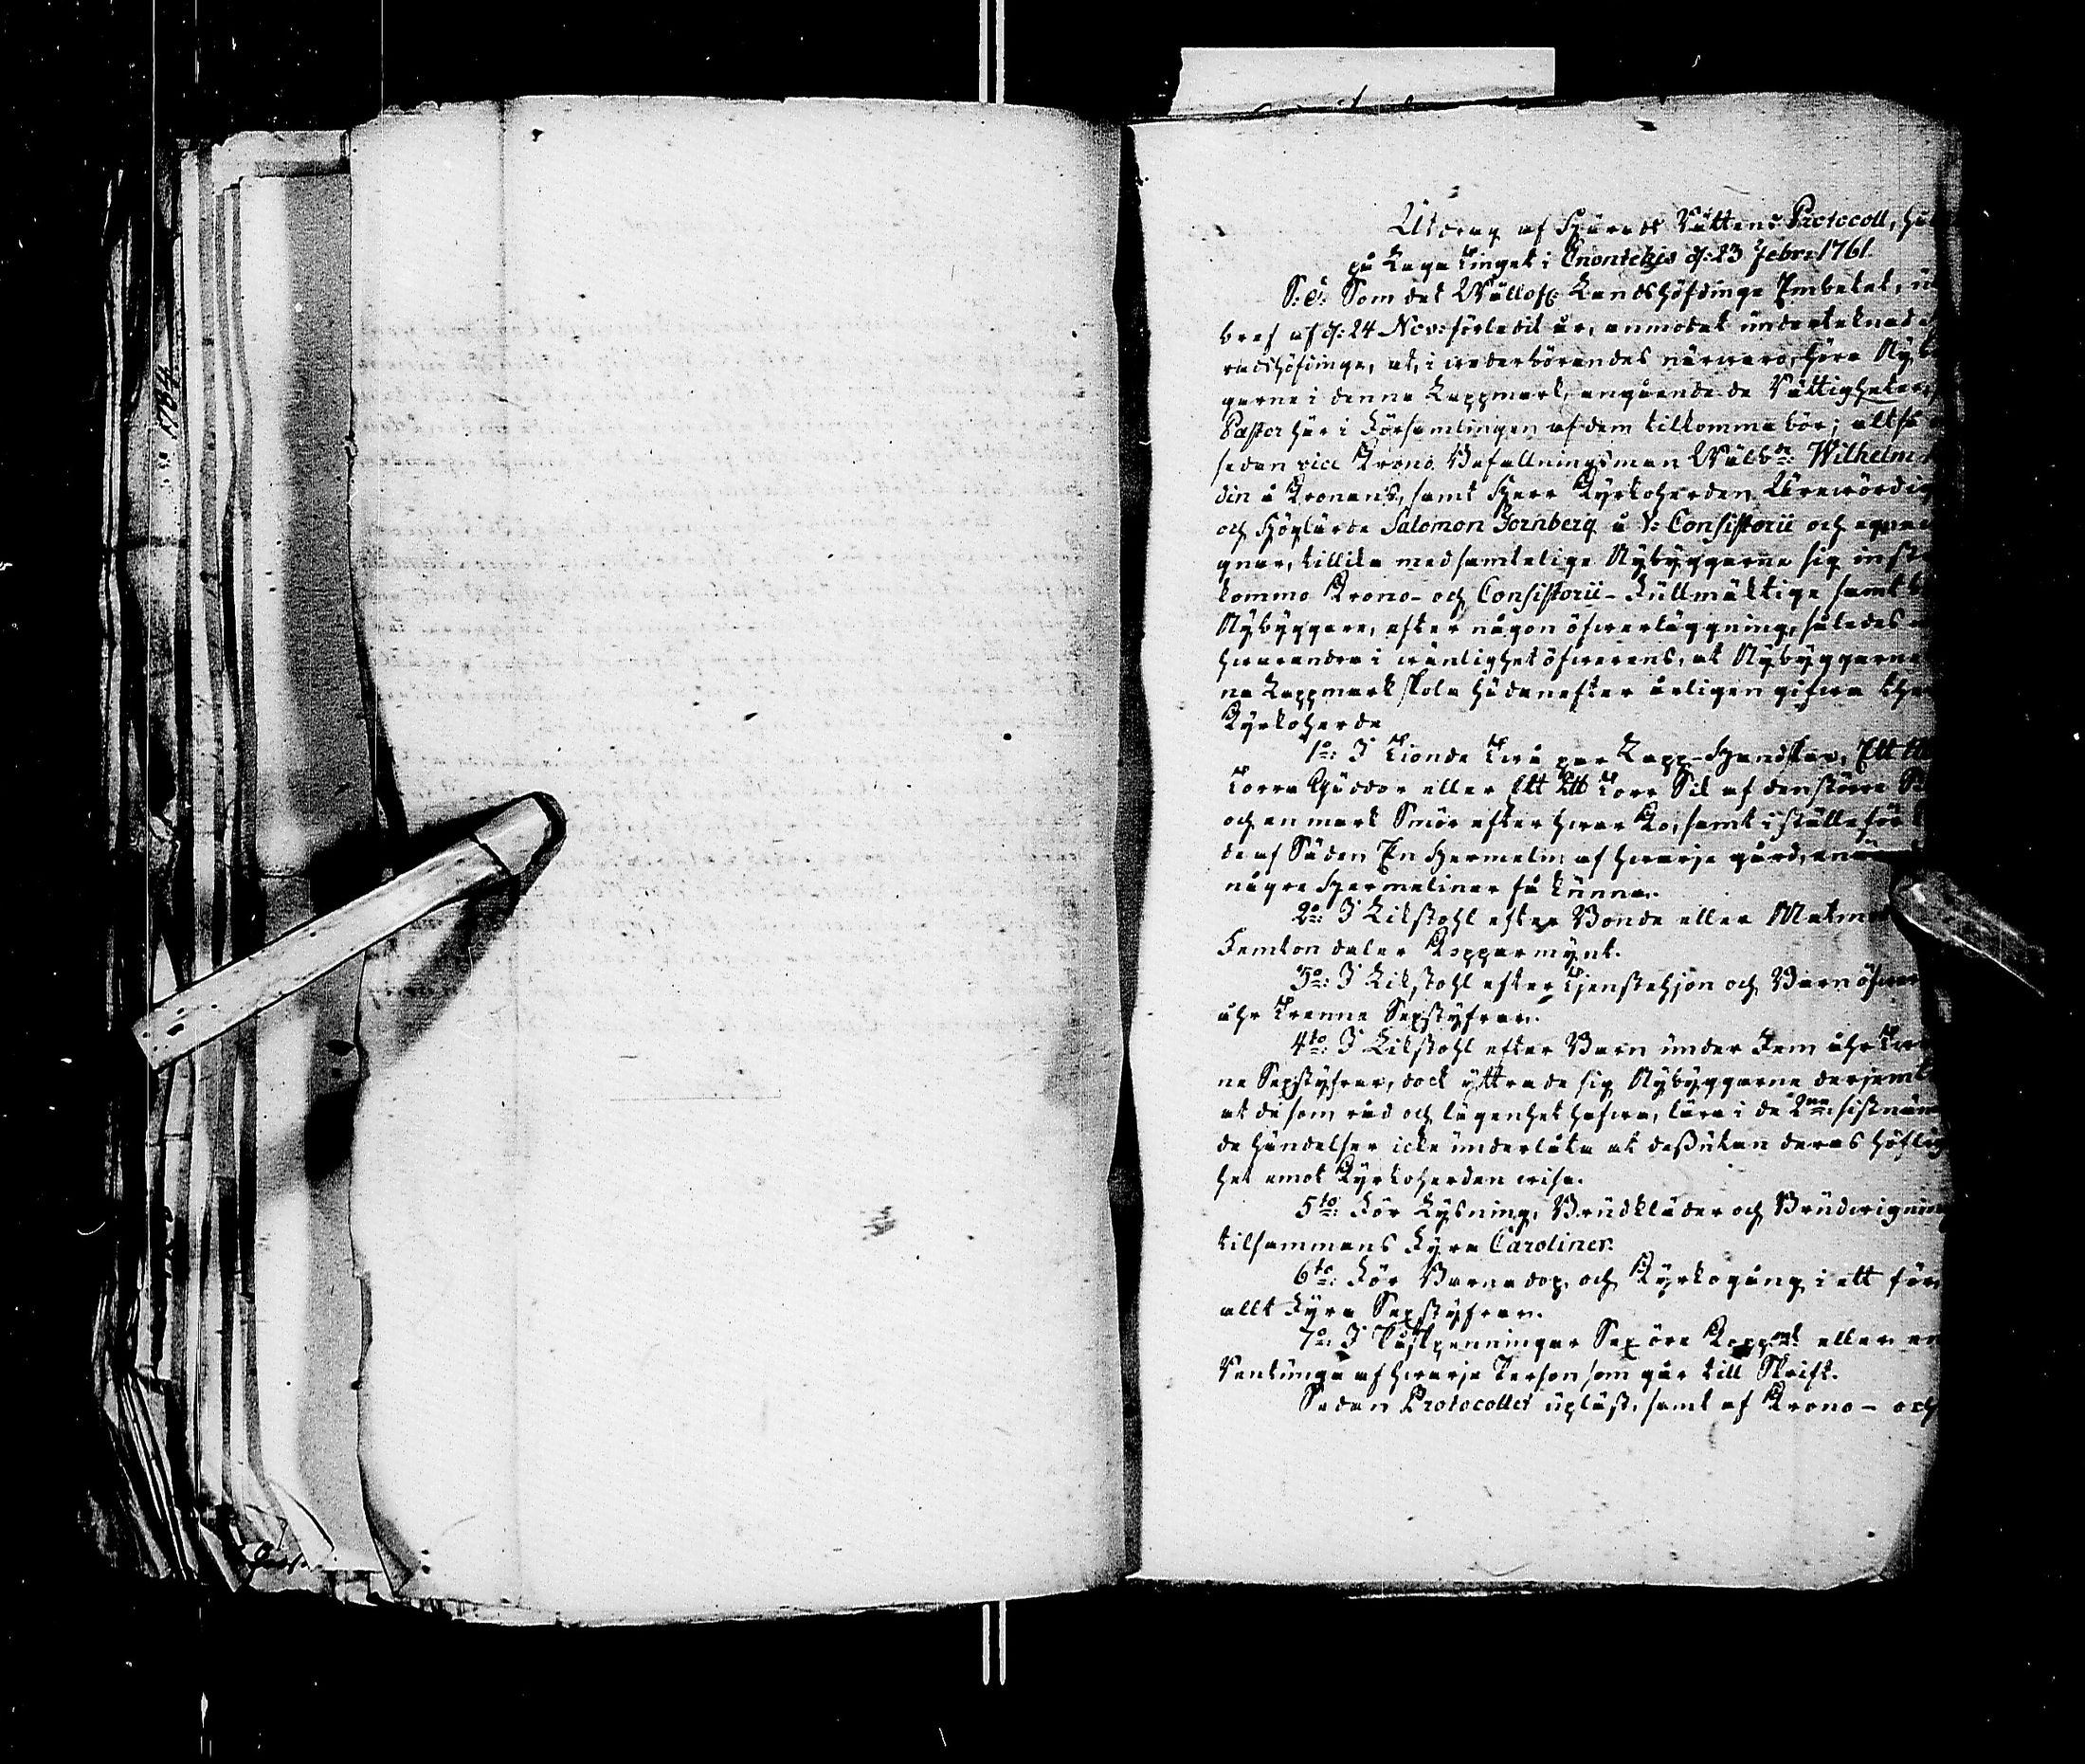 1784
Utdrag af Härads Rättens Protocoll, hål
på Laga Tinget i Enontekis d: 23 Febr: 1761
S: D: Som det Wällofl: Landshöfdinge Embetet, u
bref af d: 24 Nov: förledit år, anmodat undertecknad
radshöfdinge, at, i wederbörandes närwaro, höra Nyb
garne i denna Lappmark, angående de Rättigheter,
Pastor här i Församlingen af dem tillkomma bör; altså
sedan vice Krono Befallningsman Wälb:de Wilhelm
din å Kronans, samt Herr Kyrkoherden Ürewördig
och Höglärde Salomon Tornberg å V: Consistorii och egna
gnar, tillika med samtelige Nybyggarne sig inste
kommo Krono- och Consistorii-Fullmäktige samt
Nybyggare, efter någon öfwerläggning, således
hwarandra i wänlighet öfwerens, at Nybyggarne
na Lappmark skola hädanefter årligen gifwa the
Kyrkoherde
1o: I Tionde Twå par Lapp-Handskar, Ett
Torra Gäddor eller Ett Torr Sik af den större S
och en mark Smör efter hwar Ko, samt i ställe för
de af Säden En Hermelin af hwarje gård, enär
några Hermeliner få kunna.
2o: I Likstohl efter Bonde eller Matmo
Femton daler Koppermynt.
3o: I Likstohl efter Tjenstehjon och Barn öfwer
åhr Trenne Sexstyfrar.
4to: I Likstohl efter Barn under Fem åhr Twe
ne Sexstyfrar, dock yttrade sig Nybyggarne derjemt
at de som råd och lägenhet hafwa, lära i de 2ne: sistnäm
de händelser icke underlåta at dessutan deras höflig
het emot Kyrkoherden wisa.
5to: För Lysning, Brudkläder och Brudwigning
tilsammans Fyra Caroliner.
6to: För Barnadop och Kyrkogång i ett för
allt Fyra Sexstyfrar.
7o: I Påskpenningar Sex öre Kopp:mt eller en
Rentunga af hwarje Person som går till Skrift.
Sedan Protocollet upläst, samt af Krono- och